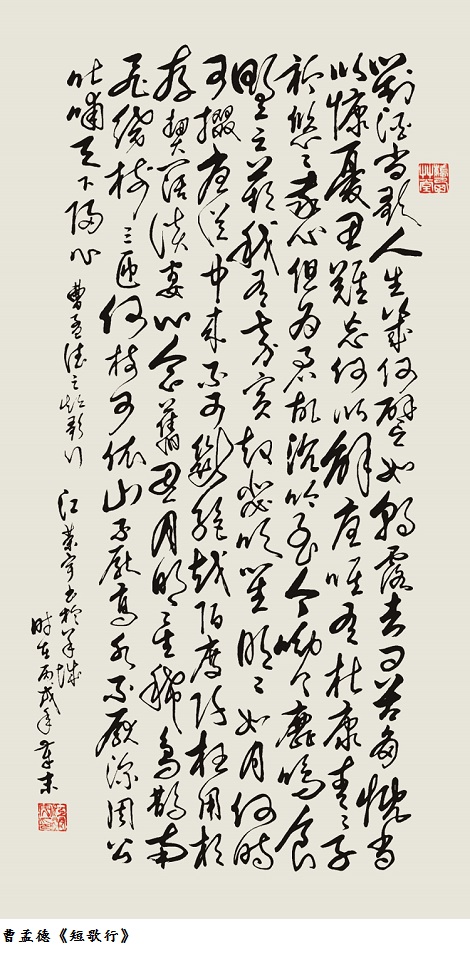 對酒當歌人生幾何譬如朝露去日苦多慨當
以慷憂思難忘何以解憂唯有杜康青青子
衿悠悠我心但為君故沉吟至今呦呦鹿鳴食
野之苹我有嘉賓鼓瑟吹笙明明如月何時
可掇憂從中來不可斷絕越陌度阡枉用相
存契闊談宴心念舊恩月明星稀烏鵲南
飛繞樹三匝何枝可依山不厭高水不厭深周公
吐哺天下歸心 曹孟德之短歌行 江 宇書於羊城
時在丙戌年 末
曹孟德《短歌行》